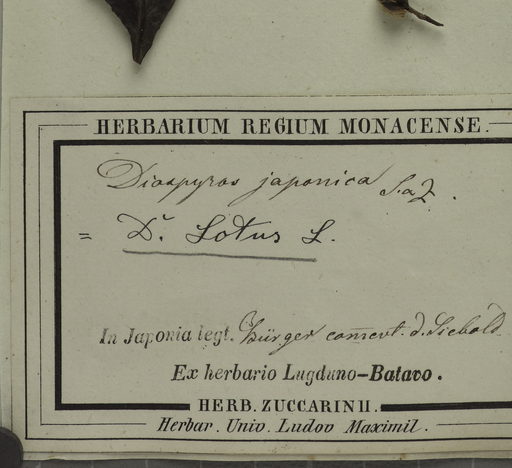 HERBARIUM REGIUM MONACENSE.
Diospyros japonica S. a Z.
= D. Lotus L.
In Japonia legt. Bürger comert. d. Siebold
Ex herbario Lugduno-Batavo.
HERB. ZUCCARINII.
Herbar. Univ. Ludov Maximil.